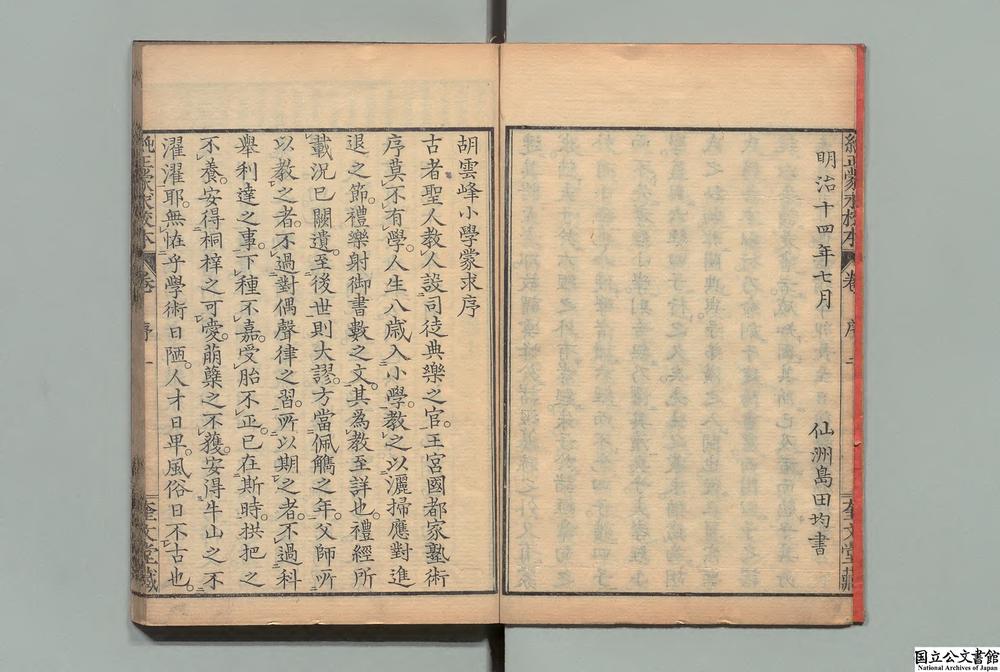 明治十四年七月
仙洲島田均書
純正蒙求校本
卷
序
二
奎文堂藏
胡雲峰小學蒙求序
古者聖人教人設司徒典樂之官。王宮國都家塾術
序莫不有學。人生八歲入小學。教之以灑掃應對進
退之節。禮樂射御書數之文。其為教至詳也。禮經所
載況已闕遺。至後世則大謬。方當佩觿之年。父師所
以教之者。不過對偶聲律之習。所以期之者。不過科
舉利達之事。下種不嘉。受胎不正。已在斯時。拱把之
不養。安得桐梓之可愛。萠蘖之不獲。安得牛山之不
濯濯耶。無怪乎學術日陋。人才日卑。風俗日不古也。
純正蒙求校本
卷
序
一
奎文堂藏
国立公文書館
National Archives of Japan